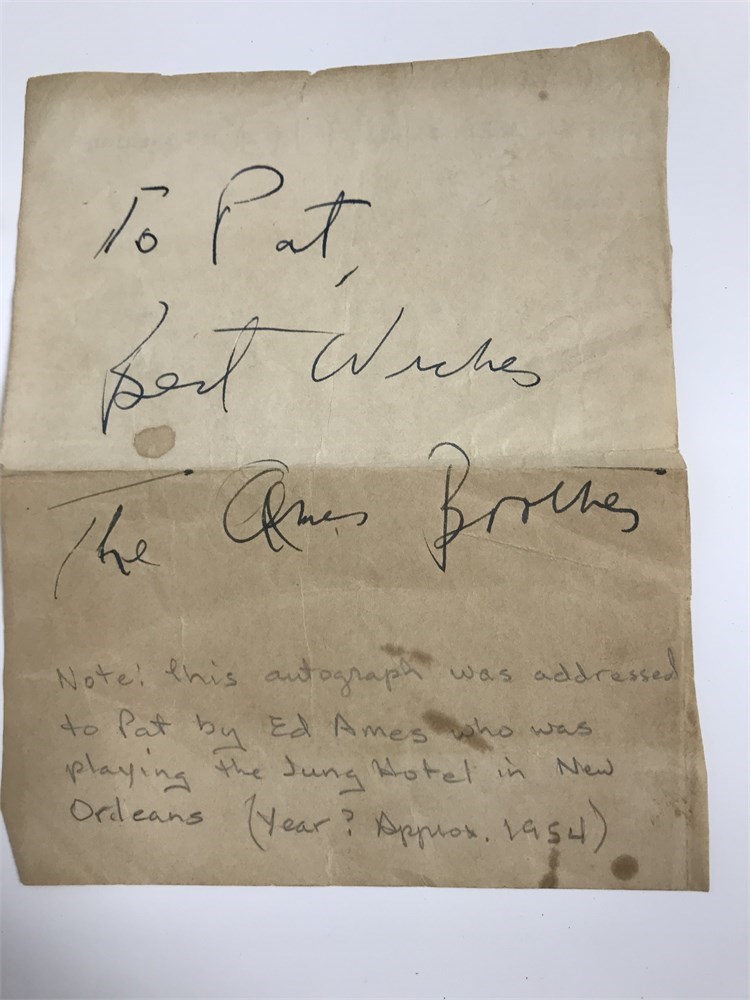 To Pat,
Best Wishes
The Ames Brothers
Note: this autograph was addressed
to Pat by Ed Ames who was
playing the Jung Hotel in New
Orleans (Year? Approx. 1954)